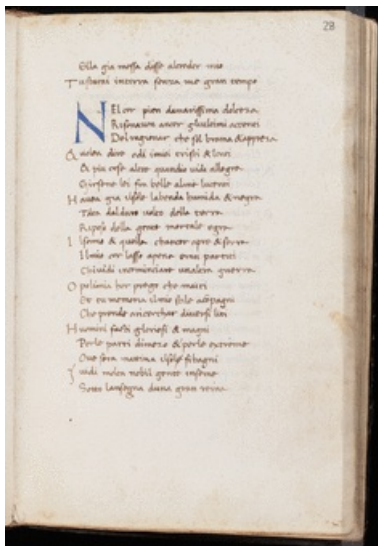 28
Ella gia mossa disse al creder mio
Tu starai in terra senza me gran tempo
NEl cor pien damarissima dolceza
Risonavan ancor gliultimi accenti
Del ragionar che sol brama & appreza
& volea dire o di miei tristi & lenti
& piu cose altre quandio vidi allegra
Girsene lei fra belle alme lucenti
Havea gia il sole la benda humida & negra
Tolta dal duro volto della terra
Riposo della gente mortale egra
Il sonno & quella chancor apre & serra
Il mio cor lasso apena eran partiti
Chi vidi incominciare unaltra guerra
O polimia hor prego che maiti
Et tu memoria il mio stile acōpagni
Che prende a ricerchar diversi liti
Huomini facti gloriosi & magni
Per le parti di mezo & per le extreme
Ove sera mattina il sole si bagni
I vidi molta nobil gente insieme
Sotto lansegna duna gran reina